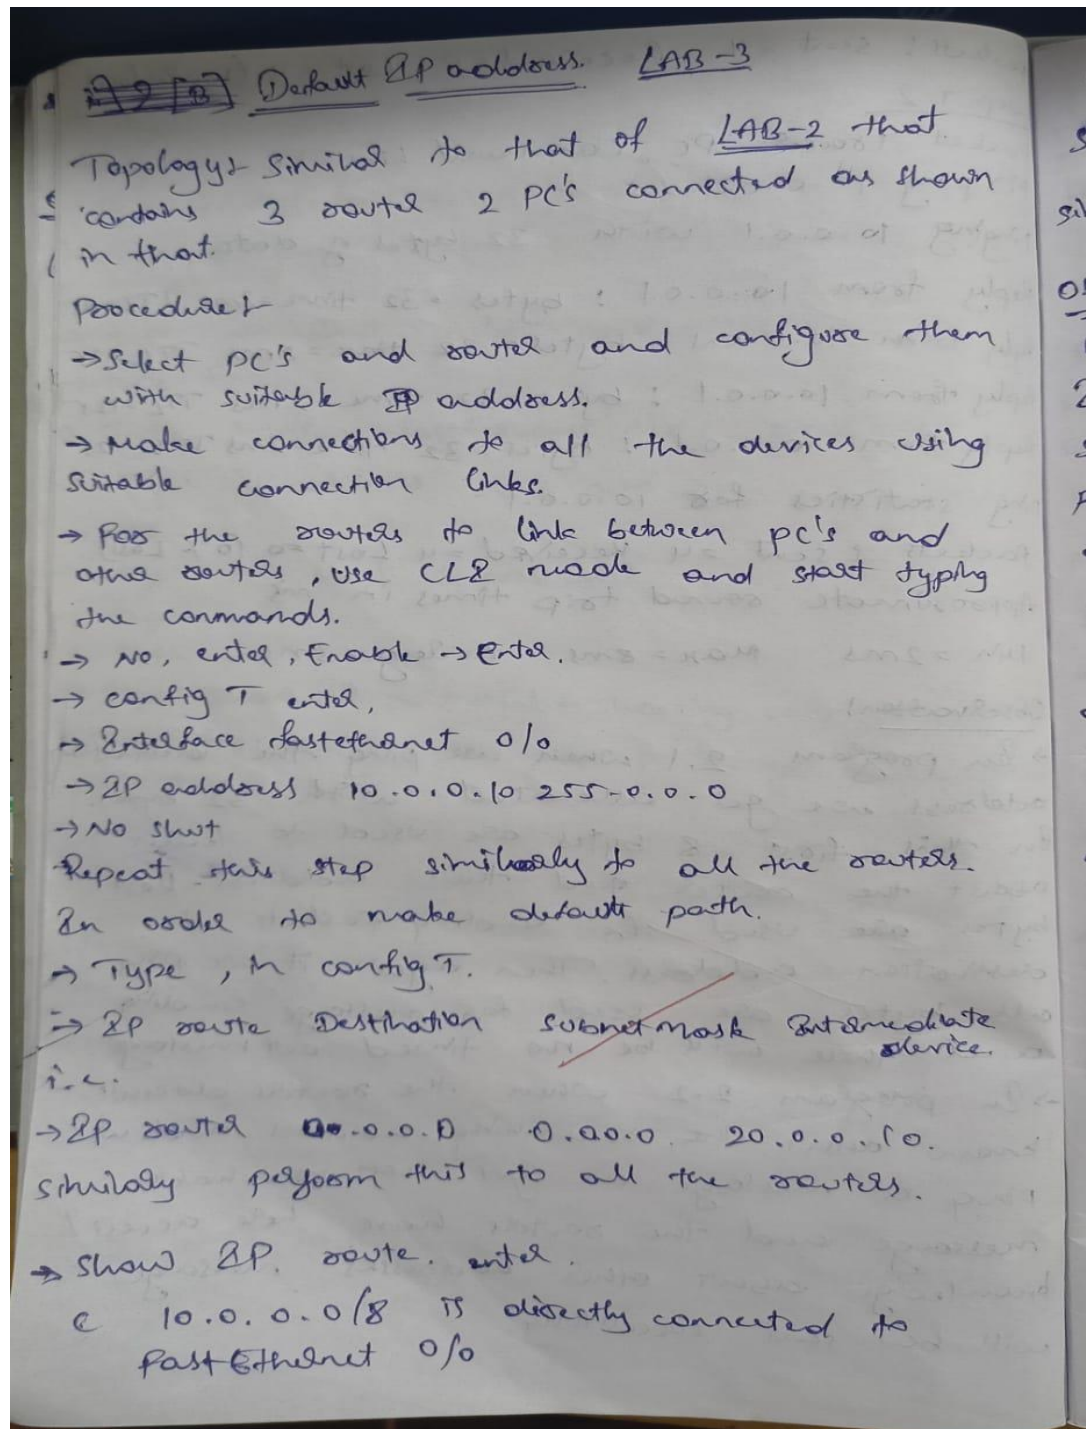 Default IP address. LAB-3
Topology:- Similar to that of LAB-2 that
contains 3 router 2 PC's connected as shown
in that.
Procedure:-
→ Select PC's and router and configure them
with suitable IP address.
→ Make connections to all the devices using
suitable connection links.
→ For the routers to link between pc's and
other routers, use CLI mode and start typing
the commands.
→ No, enter, Enable → Enter.
→ config T enter,
→ Interface fastethernet 0/0
→ IP address 10.0.0.10 255.0.0.0
→ No shut
Repeat this step similarly to all the routers.
In order to make default path.
→ Type, in config T.
→ IP route Destination Subnet Mask Intermediate
device.
i.e.
→ IP router 0.0.0.0 0.0.0.0 20.0.0.10.
similarly perform this to all the routers.
→ Show IP route. enter.
C 10.0.0.0/8 is directly connected to
Fast Ethernet 0/0